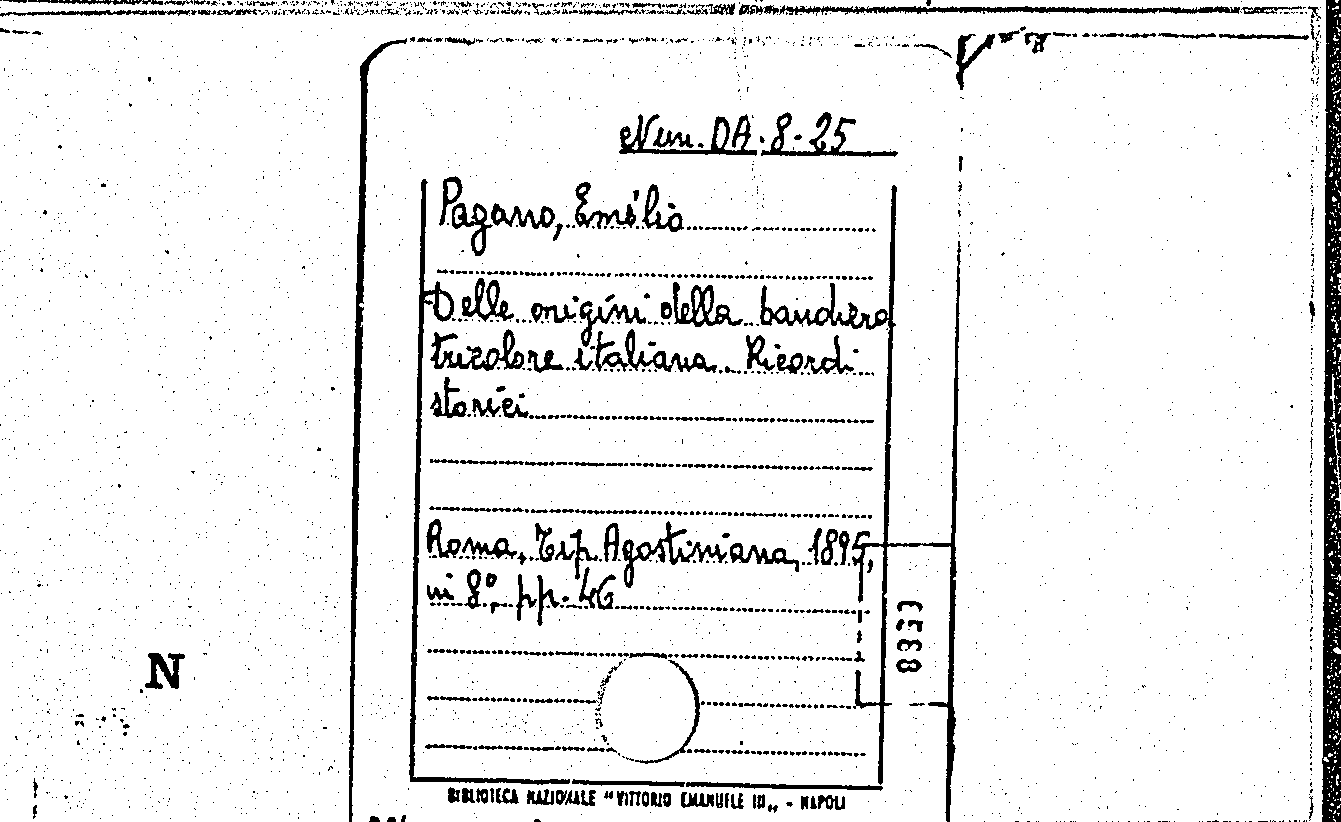 Num. DA. 8-25
Pagano, Emilio
Delle origini della bandiera
tricolore italiana. Ricordi
storici
Roma, Tip. Agostiniana, 1895,
in 8°, pp. 46
N
BIBLIOTECA NAZIONALE "VITTORIO EMANUELE III„ - NAPOLI